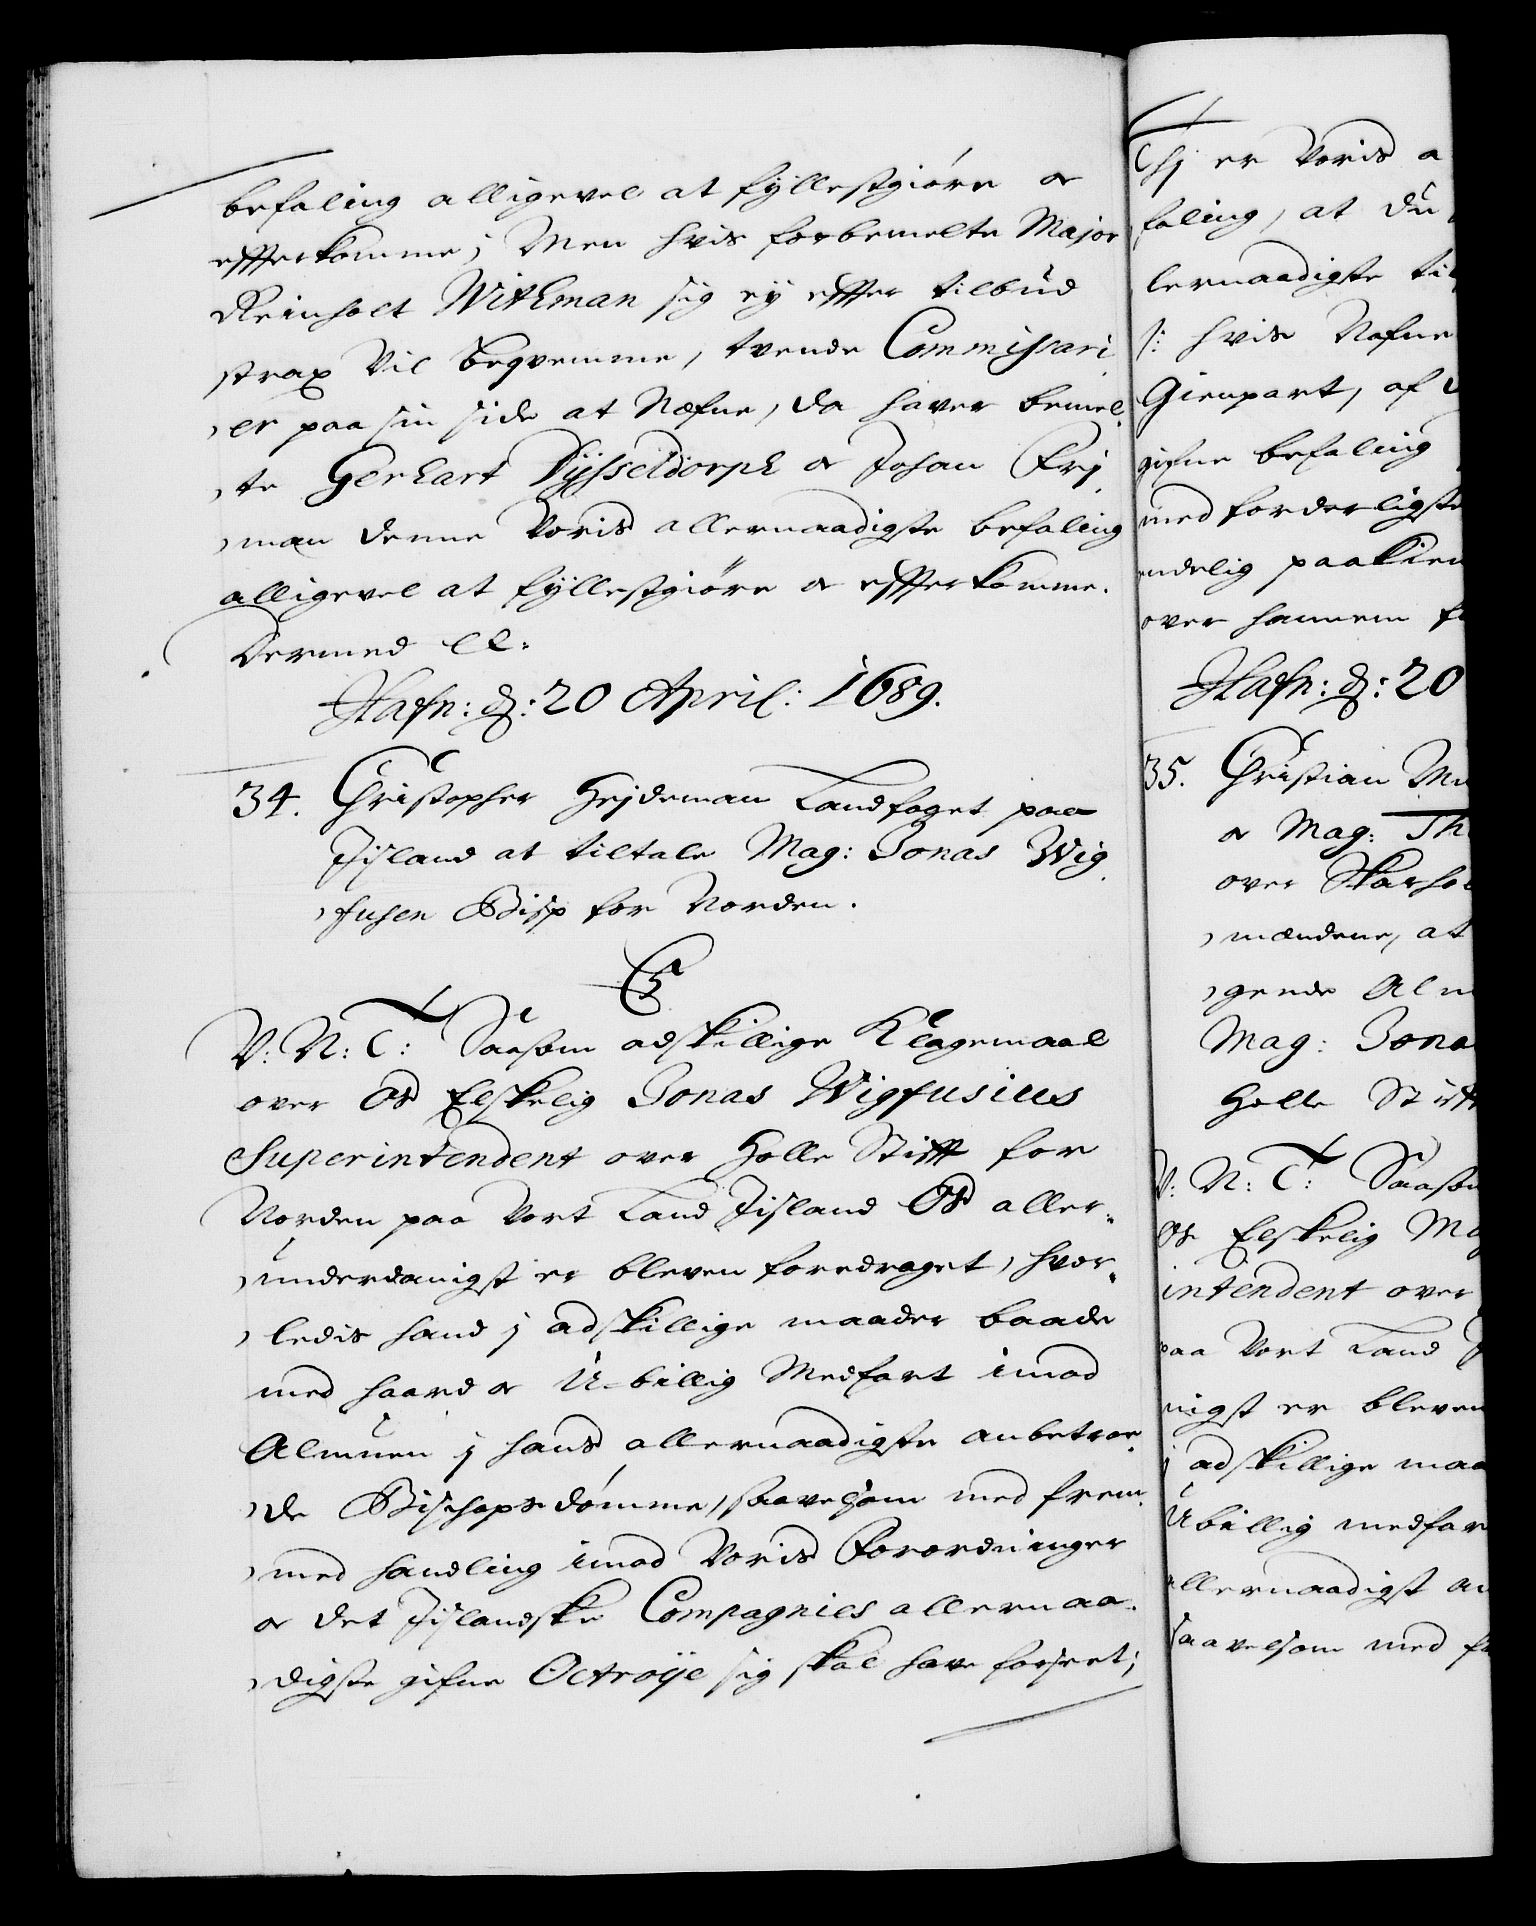 befaling alligevel at fyllestgiøre oc
effterkomme; Men hvis forbemelte Major
Reinholt Withman sig ey effter tilbud
strax Vil beqvemme, tvende Commissari
er paa sin side at Næfne, da haver bemel
te Gerhart Dysseldorph oc Johan Frj
man denne Voris allernaadigste befaling
alligevel at fyllestgiøre oc effterkomme.
Dermed etc:
Hafn: d: 20 April: 1689.
34. Christopher Heydeman Landfoget paa
Jisland at tiltale Mag: Jonas Wig
fusen Bisp for Norden.
C5
V: N: C: Saasom adskillige Klagemaal
over Os Elskelig Jonas Wigfusius
Superintendent over Holle Stifft for
Norden paa Vort Land Jisland Os aller-
underdanigst er bleven foredraget, hvor-
ledis hand j adskillige maader baade
med haard oc U-billig Medfart imod
Almuen j hans allernaadigste anbetroe
de Bischopsdømme, saavelsom med frem
med handling imod Voris Forordninger
oc det Jislandske Compagnies allernaa-
digste gifne Octroije sig skal have forseet;
Thj er Voris a
faling, at du
lernaadigste ti
/: hvis Nafne
Gienpart, af
gifne befaling
med forderligste
endelig paakien
over hannem f
Hafn: d: 20
35. Christian Mu
oc Mag: Th
over Skarho
mændene, at
gende Alm
Mag: Jona
Holle Stifft
V: N: C: Saasom
Os Elskelig Ma
intendent over
paa Vort Land J
nigst er bleven
j adskillige maa
Ubillig medfar
allernaadigst an
saavelsom med f